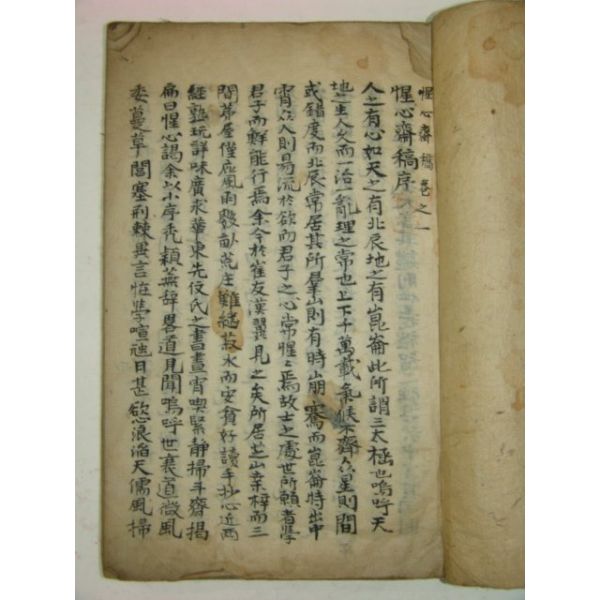 惺心齋稿卷之一
惺心齋稿序
人之有心如天之有北辰地之有崑崙此所謂三太極也嗚呼天
地之生人久而一治一亂理之常也上下千萬載氣候不齊众星則間
或錯度而北辰常居其所羣山則有時崩騫而崑崙特出中
霄众人則易流於欲而君子之心常惺〻焉故士之處世所願者學
君子而鮮能行焉余今於崔友漢翼見之矣所居芝山桑梓而三
間茅屋僅庇風雨數畝荒庄難繼菽水而安貧好讀手抄心近西
經熟玩詳味廣求華東先佼氏之書晝宵喫緊靜掃斗齋揭
扁曰惺心謁余以小序禿穎蕪辞畧道見聞嗚呼世衰道微風
委蔓草閭塞荊棘異言恠學喧豗日甚慾浪滔天儒風掃